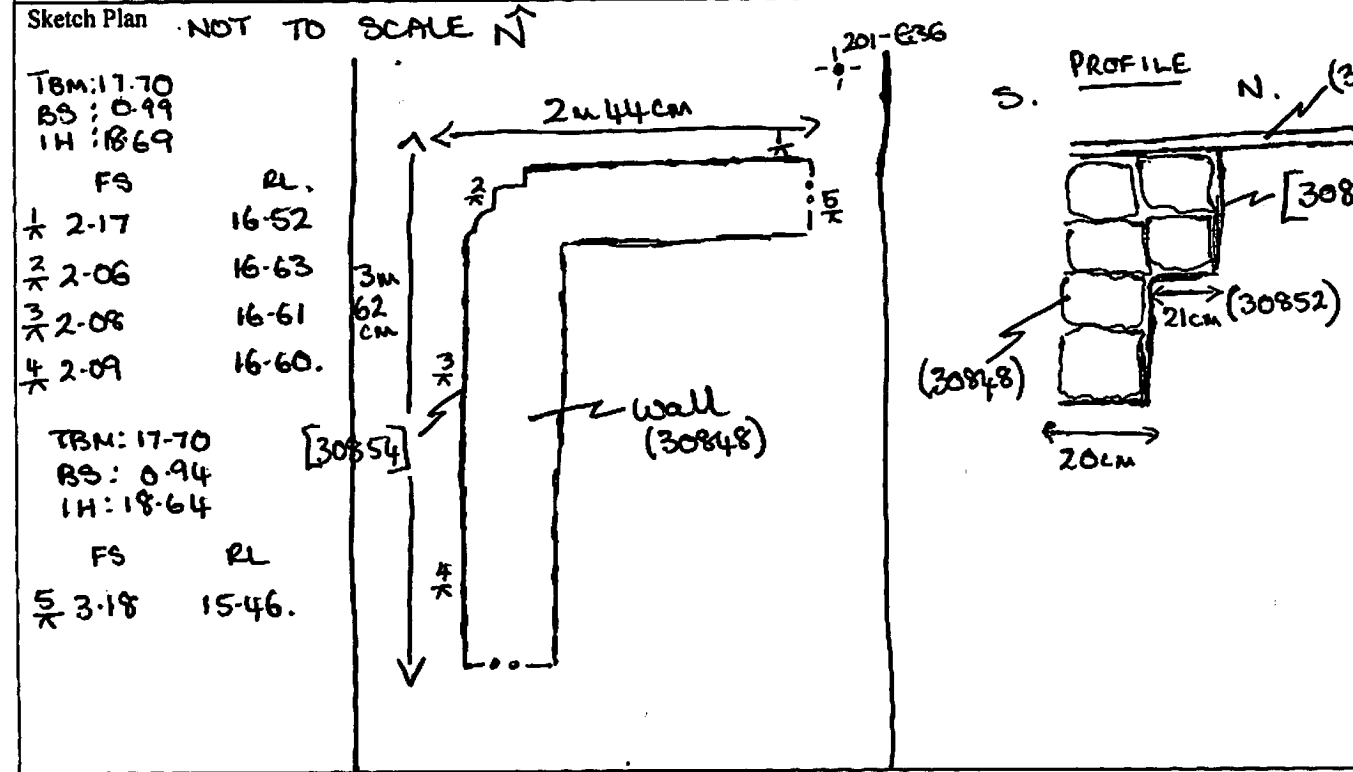 Sketch Plan NOT TO SCALE N
TBM: 17.70
BS: 0.99
IH: 18.69
FS RL.
1 2.17 16.52
2 2.06 16.63
3 2.08 16.61
4 2.09 16.60.
TBM: 17-70
BS: 0.94
IH: 18.64
FS RL
5 3.18 15-46.
2m 44cm
1
2
5
3m
62
cm
3
[30854]
wall
(30848)
4
PROFILE
S.
N.
21cm (30852)
(30848)
20cm